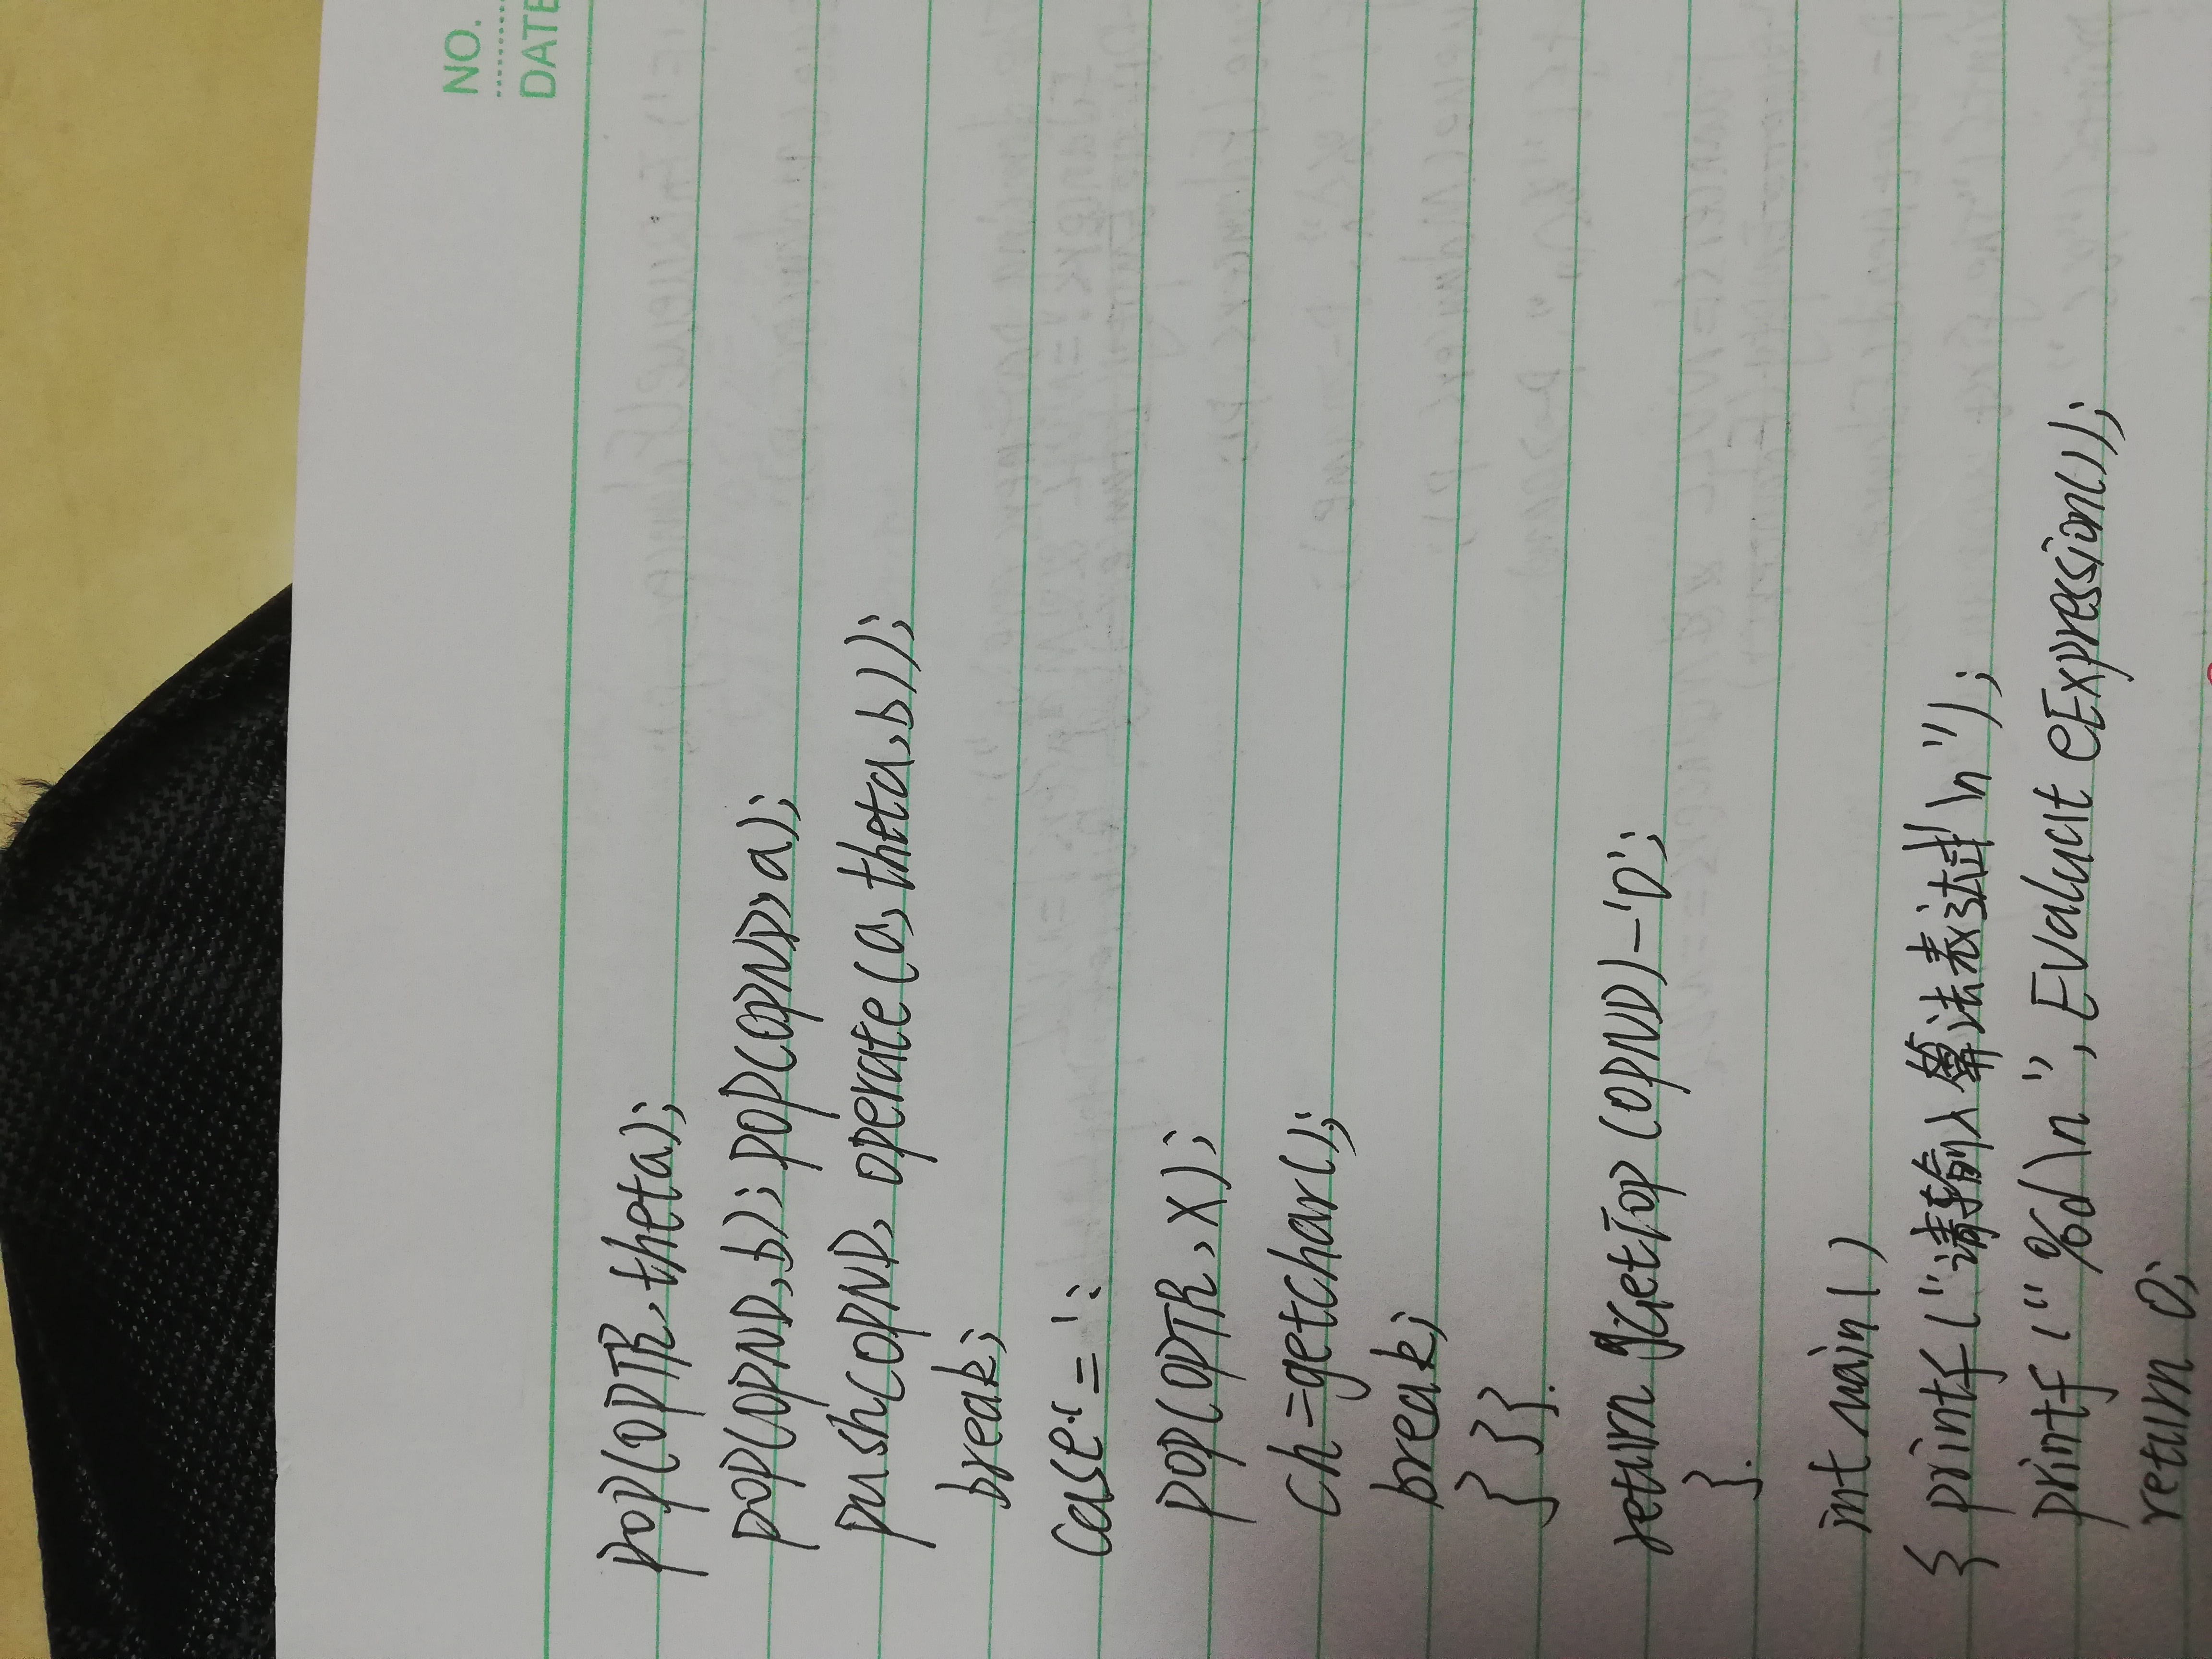 NO.
DATE
pop(OPTR, theta);
pop(OPND, b); pop(OPND, a);
push(OPND, operate(a, theta, b));
break;
case '=':
pop(OPTR, x);
ch=getchar();
break;
} } }.
return GetTop(OPND)-'0';
}.
int main()
{ printf("请输入算法表达式\n");
printf("%d\n", EvaluateExpression());
return 0;